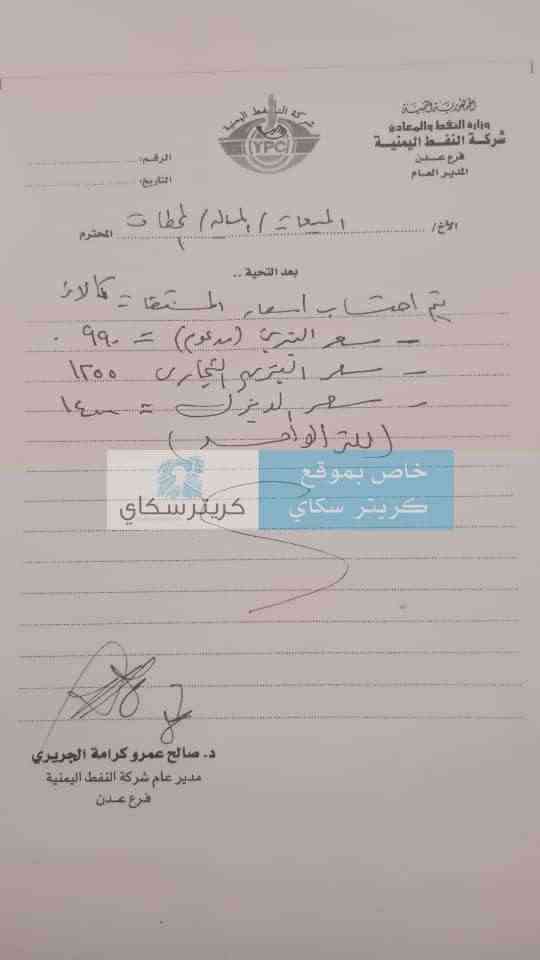 الجمهورية اليمنية
وزارة النفط والمعادن
شركة النفط اليمنية
فرع عدن
المدير العام
شركة النفط اليمنية
YPC
الرقم:
التاريخ:
الأخ/ المبيعات / المالية / المحطات المحترم
بعد التحية ..
يتم احتساب اسعار المشتقات كالآتي
- سعر البترول (مدعوم) = ٩٩٠
- سعر البترول التجاري ١٢٥٥
- سعر الديزل = ١٤٠٠
(للتر الواحد)
خاص بموقع
كريتر سكاي
كريترسكاي
د. صالح عمرو كرامة الجريري
مدير عام شركة النفط اليمنية
فرع عدن